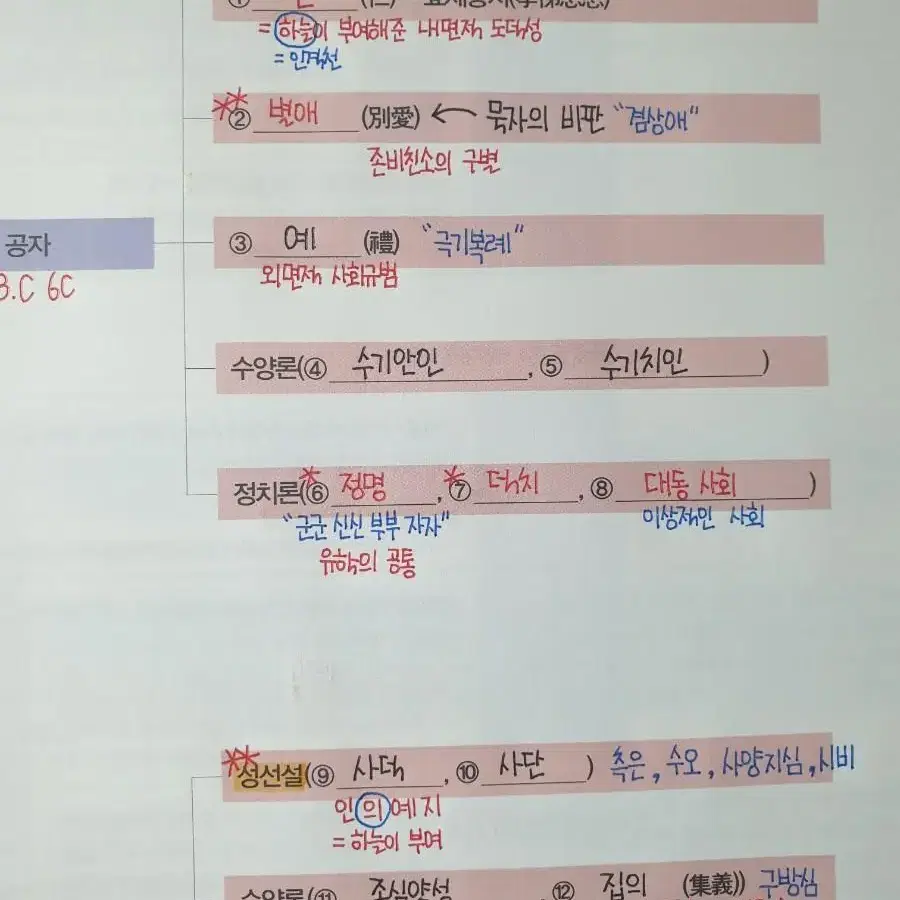 ① 인 (仁)
= 하늘이 부여해준 내면적 도덕성
= 인격천
** ② 별애 (別愛) ← 묵자의 비판 "겸상애"
존비친소의 구별
공자
B.C 6C
③ 예 (禮) "극기복례"
외면적 사회규범
수양론(④ 수기안인, ⑤ 수기치인)
정치론(*⑥ 정명, *⑦ 덕치, ⑧ 대동 사회)
"군군 신신 부부 자자" 이상적인 사회
유학의 공통
** 성선설(⑨ 사덕, ⑩ 사단) 측은, 수오, 사양지심, 시비
인의예지
= 하늘이 부여
수양론(⑪ 존심양성, ⑫ 집의 (集義)) 구방심